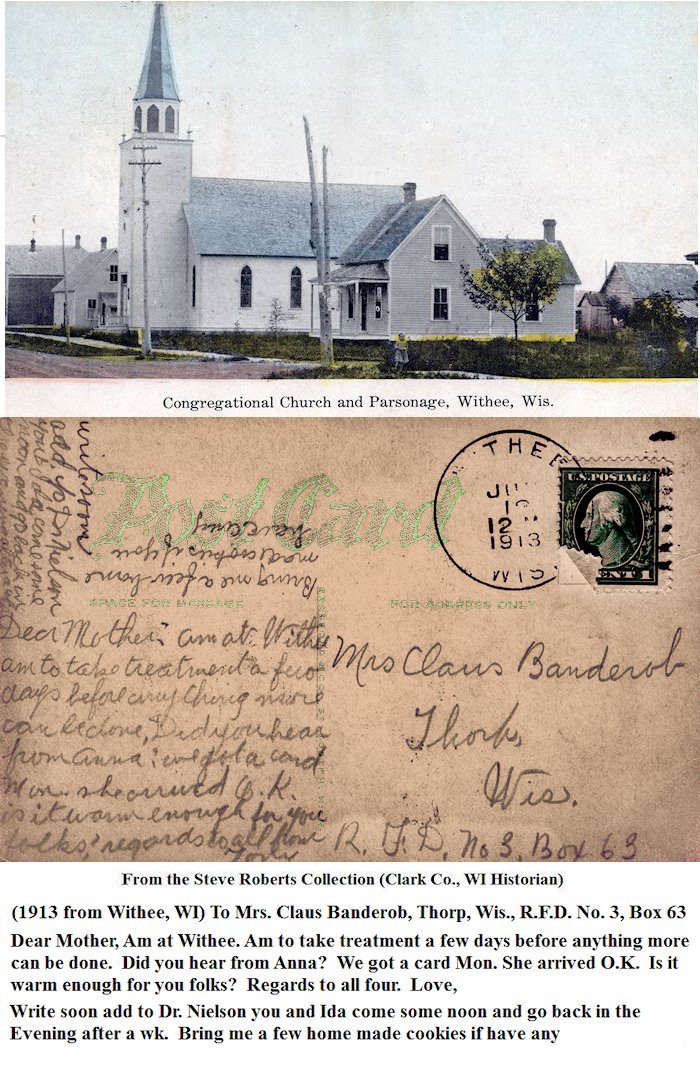 Congregational Church and Parsonage, Withee, Wis.
write soon
add to Dr Nielson
you & Ida come some
noon and go back in
Post Card
Bring me a few home
made cookies if you
have any
SPACE FOR MESSAGE
FOR ADDRESS ONLY
THEE
12 M
1913
WIS
U.S. POSTAGE
Dear Mother: am at Withee
am to take treatment a few
days before any thing more
can be done, Did you hear
from Anna? we got a card
Mon. she arrived O.K.
is it warm enough for you
folks? regards to all from
Mrs Claus Banderob
Thorp,
Wis.
R. F. D. No 3, Box 63
From the Steve Roberts Collection (Clark Co., WI Historian)
(1913 from Withee, WI) To Mrs. Claus Banderob, Thorp, Wis., R.F.D. No. 3, Box 63
Dear Mother, Am at Withee. Am to take treatment a few days before anything more
can be done.  Did you hear from Anna?  We got a card Mon. She arrived O.K.  Is it
warm enough for you folks?  Regards to all four.  Love,
Write soon add to Dr. Nielson you and Ida come some noon and go back in the
Evening after a wk.  Bring me a few home made cookies if have any